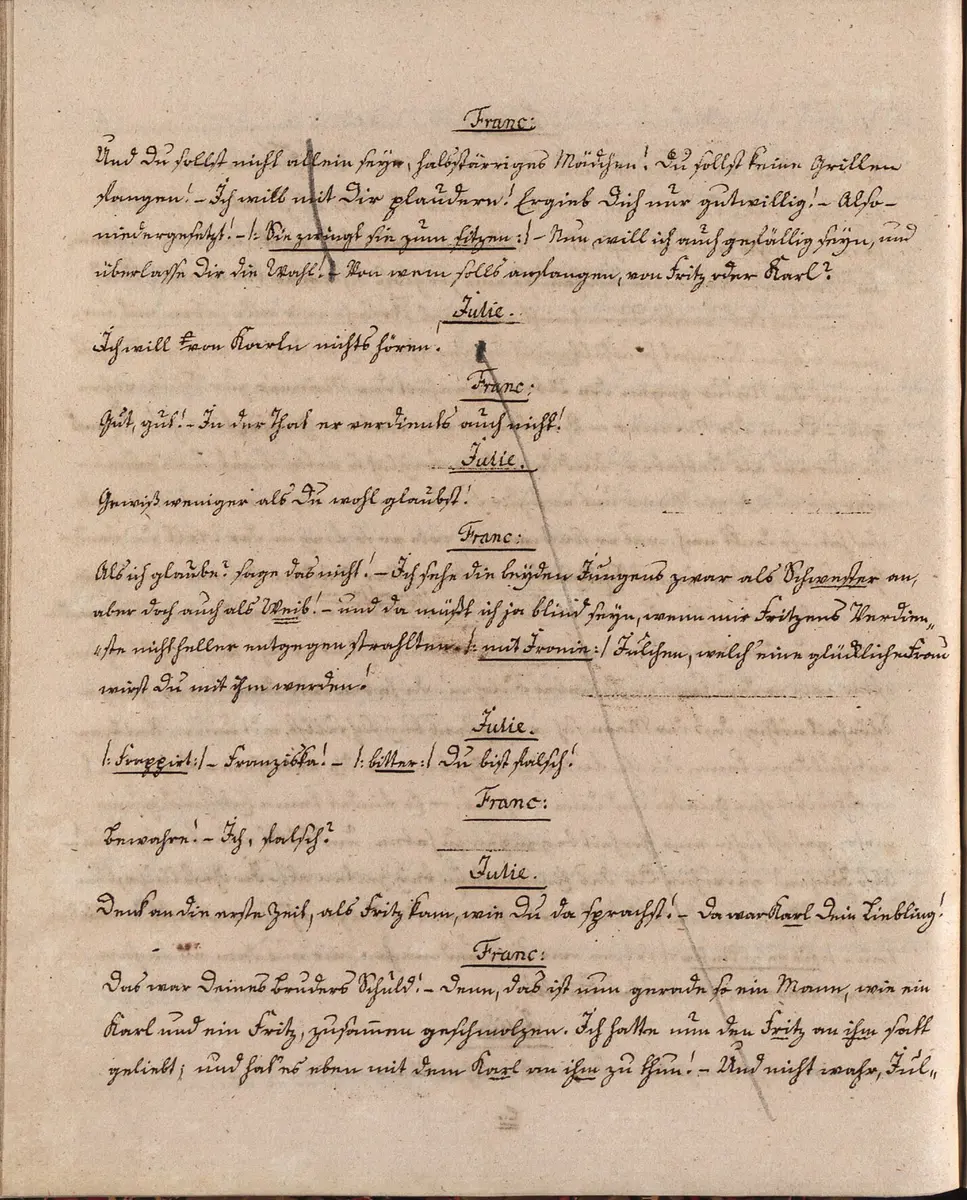 Franc:
Und Du sollst nicht allein seyn, halsstärriges Mädchen! Du sollst keine Grillen
fangen! – Ich will mit Dir plaudern! Ergieb Dich nur gutwillig! – Also –
niedergesetzt! – /: Sie zwingt sie zum sitzen :/ – Nun will ich auch gefällig seyn, und
überlasse Dir die Wahl! – Von wem solls anfangen, von Fritz oder Karl?
Julie.
Ich will von Karln nichts hören!
Franc:
Gut, gut! – In der That er verdients auch nicht!
Julie.
Gewiß weniger als Du wohl glaubst!
Franc:
Als ich glaube? sage das nicht! – Ich sehe die beyden Jungens zwar als Schwester an,
aber doch auch als Weib! – und da müßt ich ja blind seyn, wenn mir Fritzens Verdien„
„ste nicht heller entgegen strahlten /: mit Ironie :/ Julchen, welch' eine glückliche Frau
wirst Du mit ihm werden!
Julie.
/: Frappirt :/ – Franziska! – /: bitter :/ Du bist falsch!
Franc:
Bewahre! – Ich, falsch?
Julie.
Denk an die erste Zeit, als Fritz kam, wie Du da sprachst! – Da war Karl Dein Liebling!
Franc:
Das war Deines Bruders Schuld! – Denn, das ist nun gerade so ein Mann, wie ein
Karl und ein Fritz, zusammen geschmolzen. Ich hatte nun den Fritz an ihm satt
geliebt; und hat's eben mit dem Karl an ihm zu thun! – Und nicht wahr, Jul„